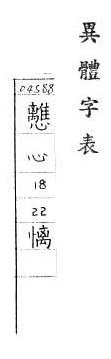 異體字表
04588
心
18
22